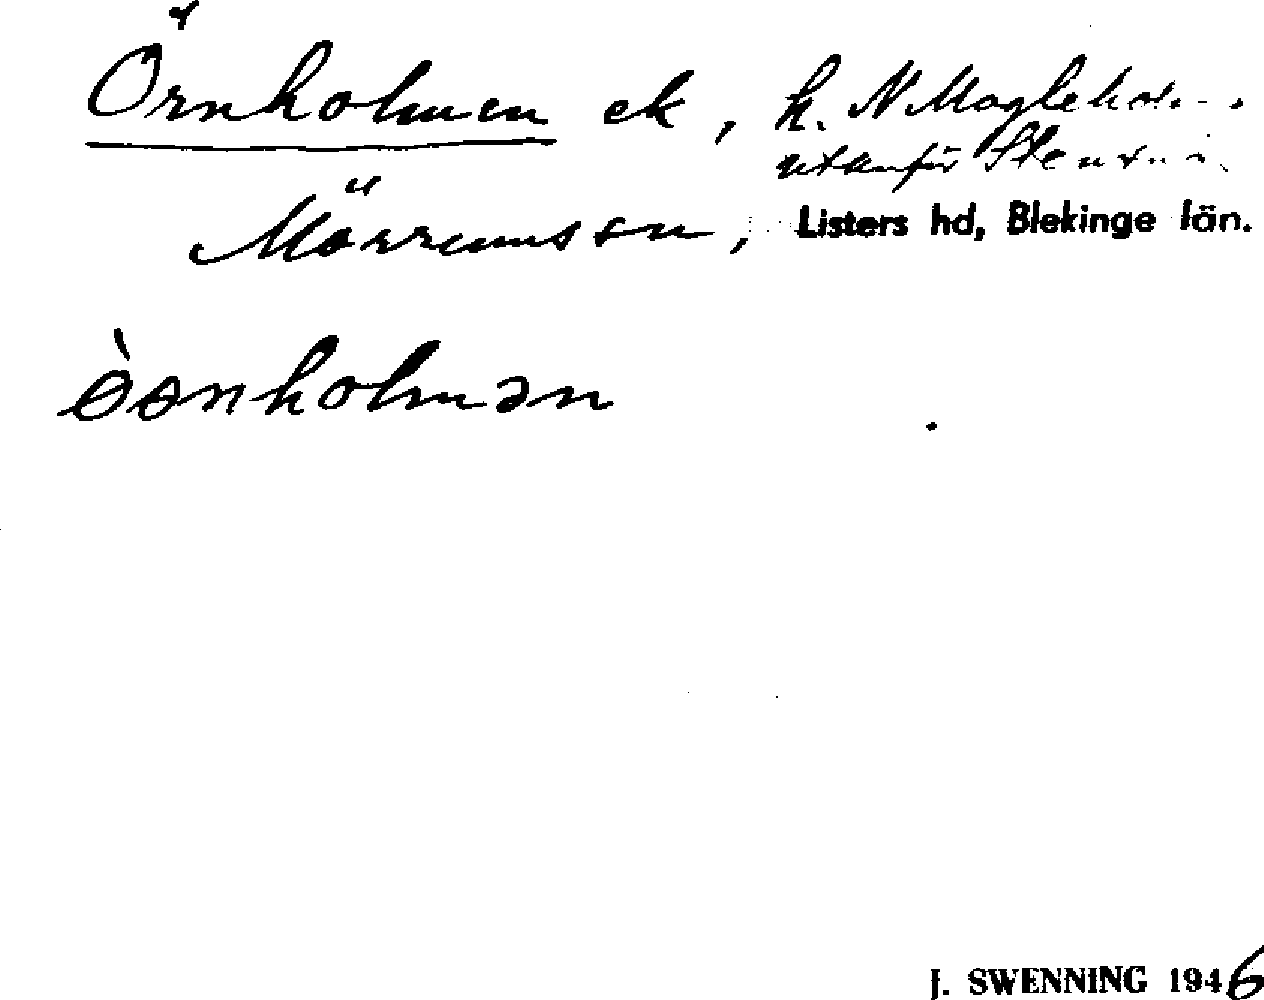 Örnholmen ek, h. N Magleholm
utanför
Mörrums sn, Listers hd, Blekinge län.
èǝnholmǝn
J. SWENNING 1946